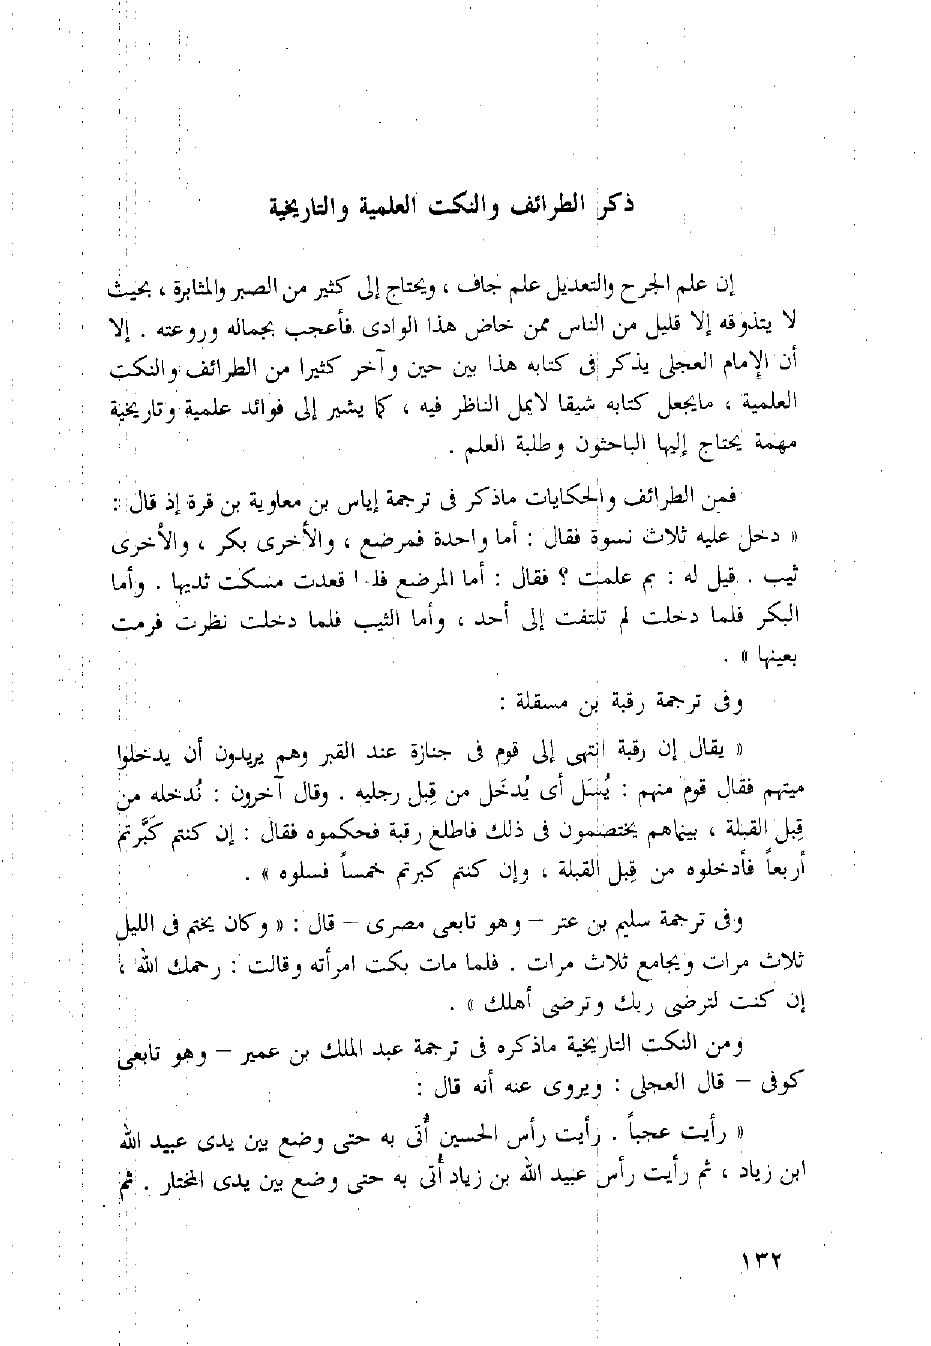 ذكر الطرائف والنكت العلمية والتاريخية
إن علم الجرح والتعديل علم جاف ، ويحتاج إلى كثير من الصبر والمثابرة ، بحيث
لا يتذوقه إلا قليل من الناس ممن خاض هذا الوادى فأعجب بجماله وروعته . إلا
أن الإمام العجلى يذكر فى كتابه هذا بين حين وآخر كثيرا من الطرائف والنكت
العلمية ، مايجعل كتابه شيقا لايمل الناظر فيه ، كما يشير إلى فوائد علمية وتاريخية
مهمة يحتاج إليها الباحثون وطلبة العلم .
فمن الطرائف والحكايات ماذكر فى ترجمة إياس بن معاوية بن قرة إذ قال :
« دخل عليه ثلاث نسوة فقال : أما واحدة فمرضع ، والأخرى بكر ، والأخرى
ثيب . قيل له : بم علمت ؟ فقال : أما المرضع فلما قعدت مسكت ثديها . وأما
البكر فلما دخلت لم تلتفت إلى أحد ، وأما الثيب فلما دخلت نظرت فرمت
بعينها » .
وفى ترجمة رقبة بن مسقلة :
« يقال إن رقبة انتهى إلى قوم فى جنازة عند القبر وهم يريدون أن يدخلوا
ميتهم فقال قوم منهم : يُسَل أى يُدخَل من قِبل رجليه . وقال آخرون : نُدخله من
قِبل القبلة ، بينماهم يختصمون فى ذلك فاطلع رقبة فحكموه فقال : إن كنتم كَبَّرتم
أربعاً فأدخلوه من قِبل القبلة ، وإن كنتم كبرتم خمساً فسلوه » .
وفى ترجمة سليم بن عتر – وهو تابعى مصرى – قال : « وكان يختم فى الليل
ثلاث مرات ويجامع ثلاث مرات . فلما مات بكت امرأته وقالت : رحمك الله ،
إن كنت لترضى ربك وترضى أهلك » .
ومن النكت التاريخية ماذكره فى ترجمة عبد الملك بن عمير – وهو تابعى
كوفى – قال العجلى : ويروى عنه أنه قال :
« رأيت عجباً . رأيت رأس الحسين أُتى به حتى وضع بين يدى عبيد الله
ابن زياد ، ثم رأيت رأس عبيد الله بن زياد أُتى به حتى وضع بين يدى المختار . ثم
١٣٢